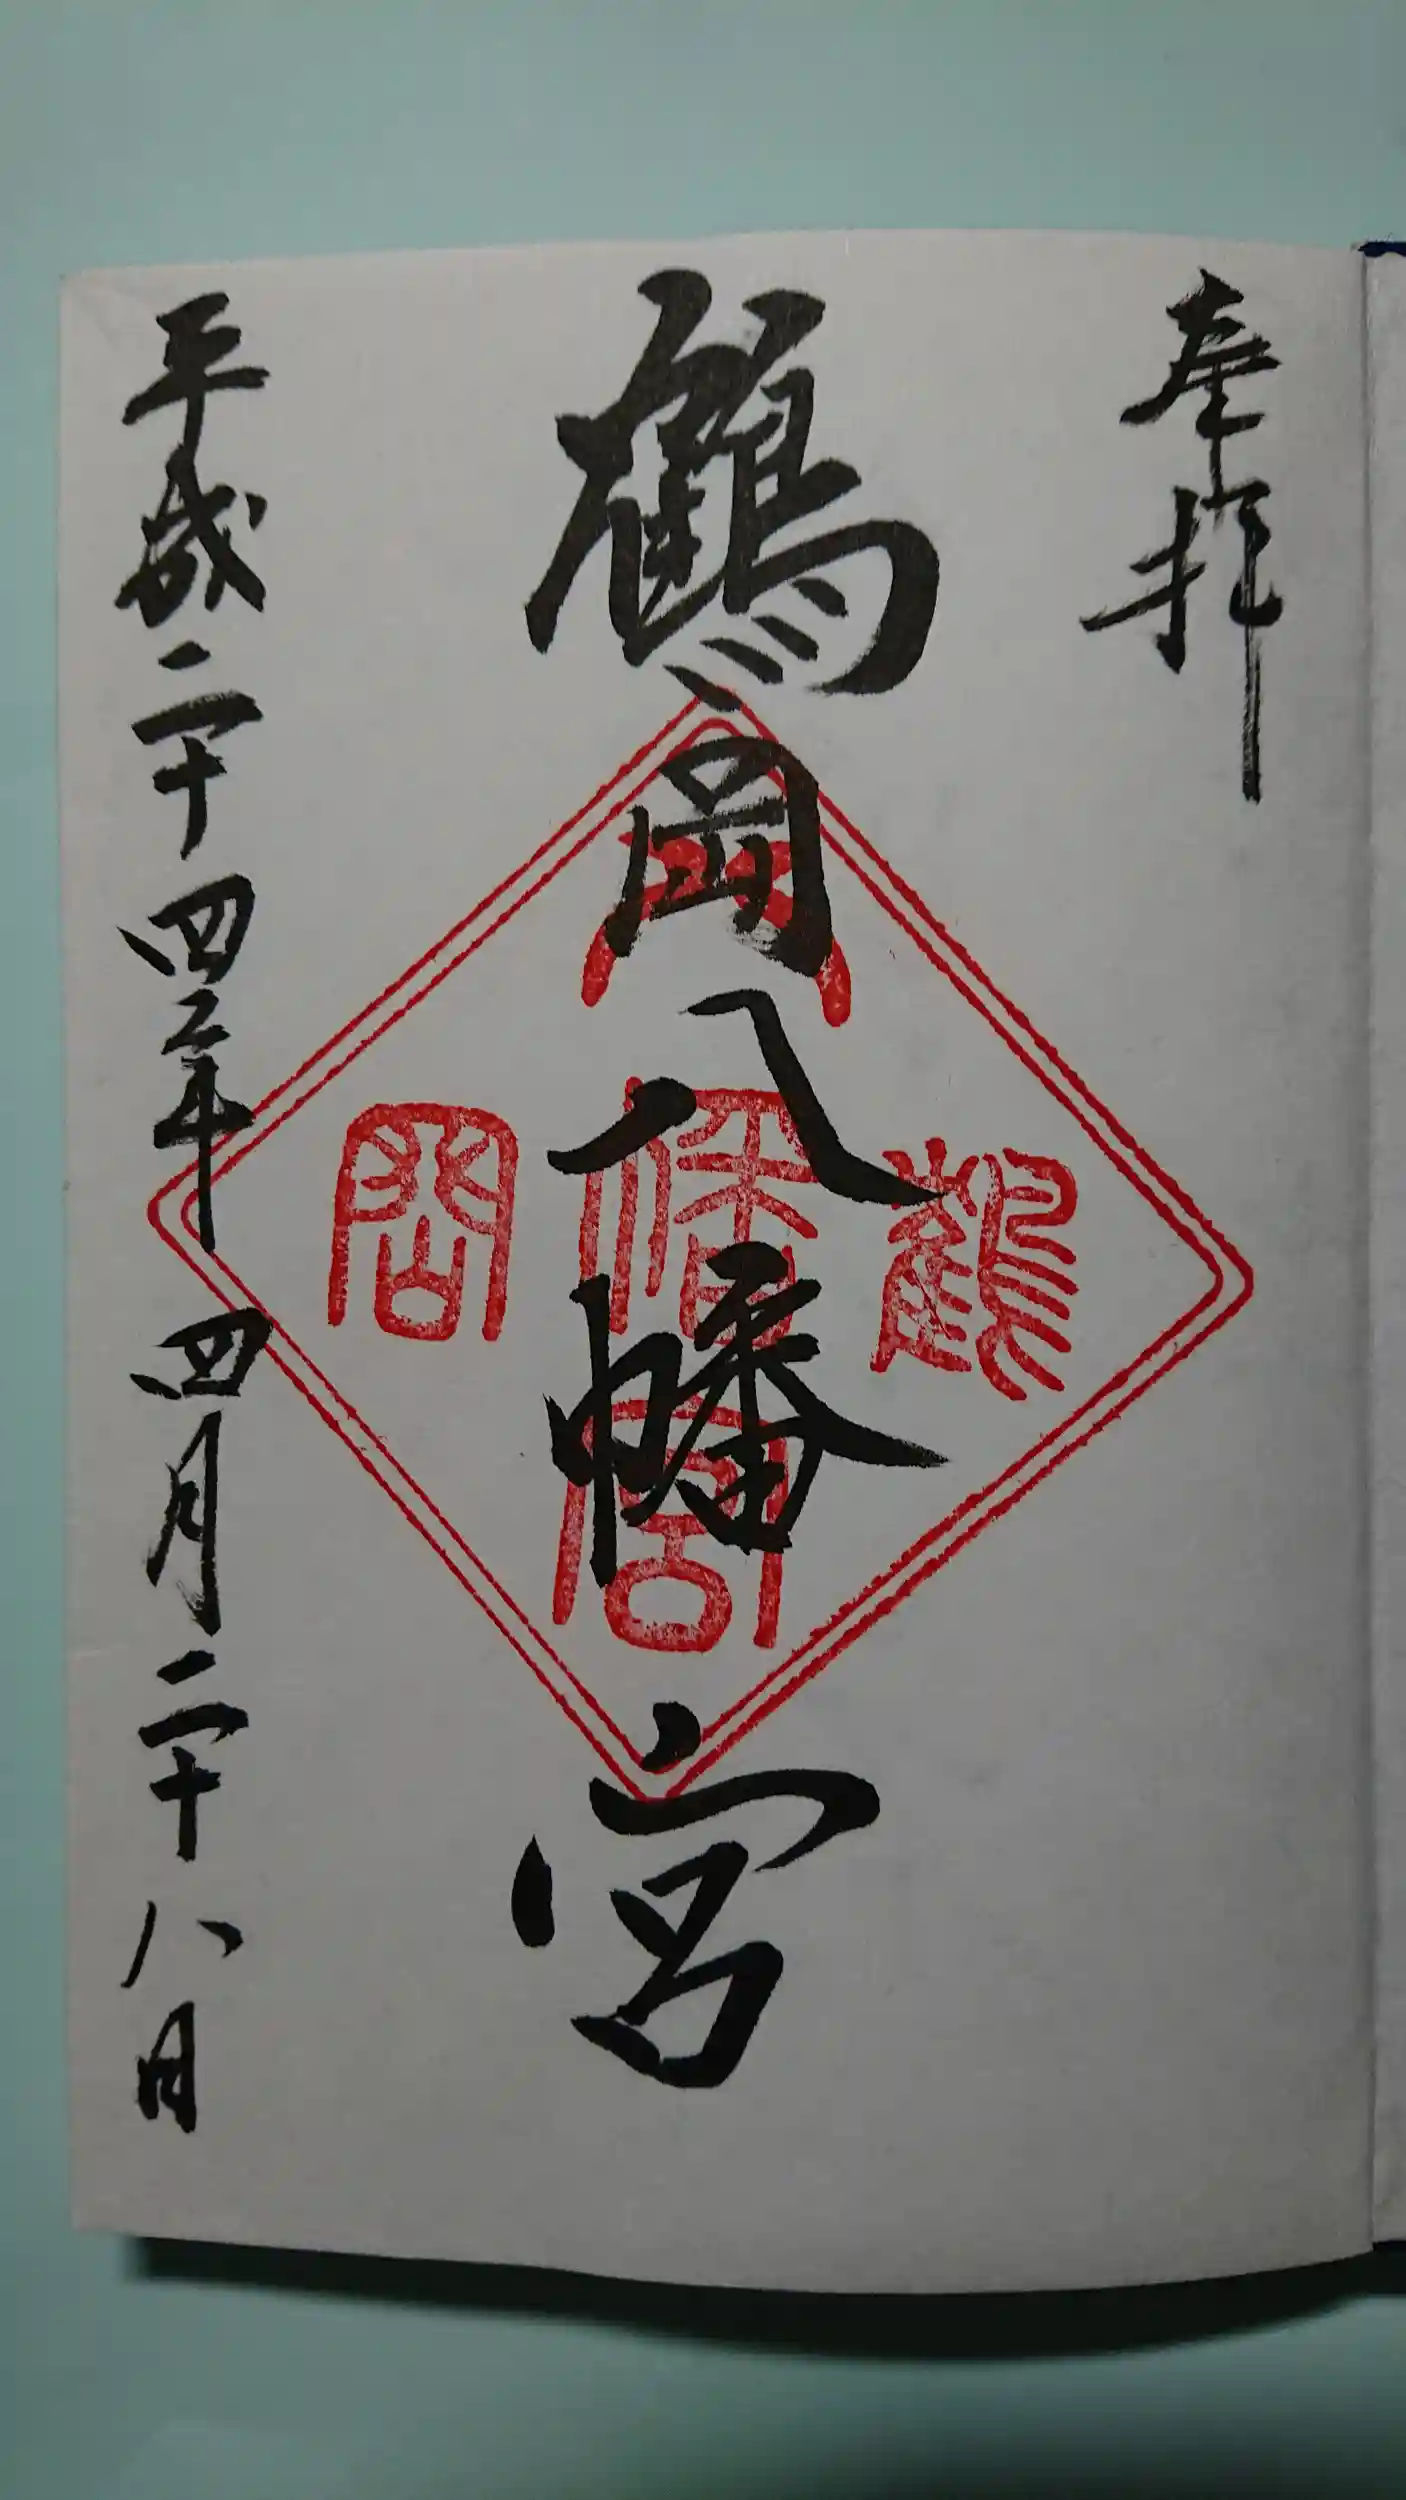 奉拝
鶴岡八幡宮
鶴
八
幡
宮
岡
平成二十四年四月二十八日